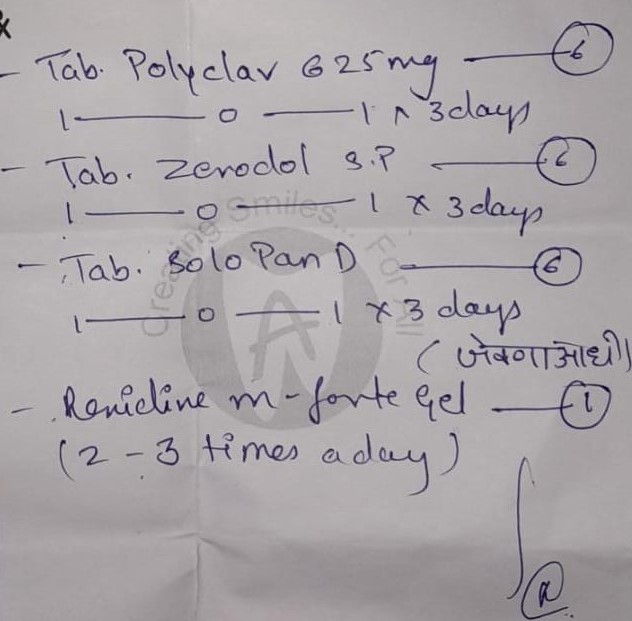 - Tab. Polyclav 625mg — 6
1 — 0 — 1 x 3days
- Tab. Zerodol S.P — 6
1 — 0 — 1 x 3days
- Tab. Solo Pan D — 6
1 — 0 — 1 x 3 days
(जेवणाआधी)
- Renidine m-forte Gel — 1
(2 - 3 times a day)
Creating Smiles... For All